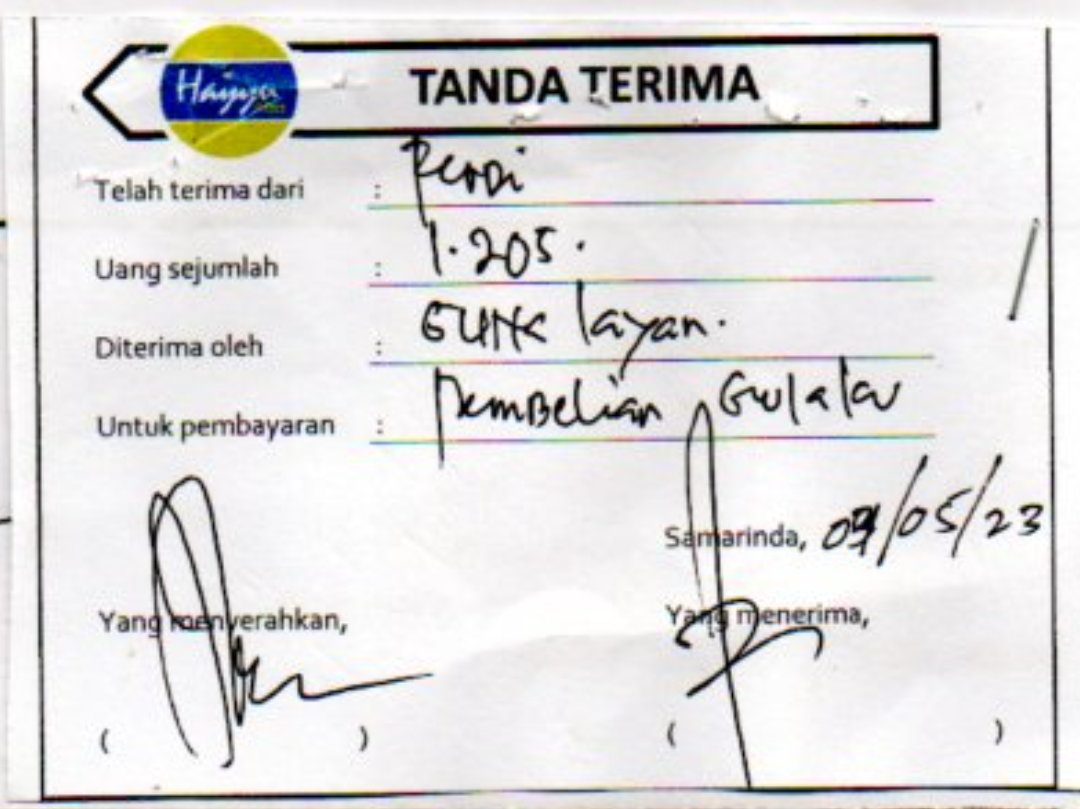 Hayyu
TANDA TERIMA
Telah terima dari : Perdi
Uang sejumlah : 1.205.
Diterima oleh : layan.
Untuk pembayaran : Pembelian Gulalu
Samarinda, /05/23
Yang menyerahkan,
Yang menerima,
( )
( )